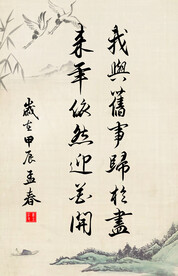 我與舊事歸於盡
来年依然迎花開
歲在甲辰孟春